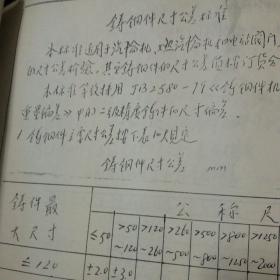 铸钢件尺寸公差标准
本标准适用于汽轮机,燃汽轮机和电站阀门
的尺寸公差
本标准等效采用 JB2580-79《铸钢件机
重量偏差》中的二级精度铸件的尺寸偏差.
1. 铸钢件主要尺寸公差按下表的规定
铸钢件尺寸公差 mm
铸件最 公 称 尺
大尺寸 ≤50 >50 >120 >260 >500 >800 >1250
~120 ~260 ~500 ~800 ~1250 ~2000
≤120 ±2.0 ±3.0